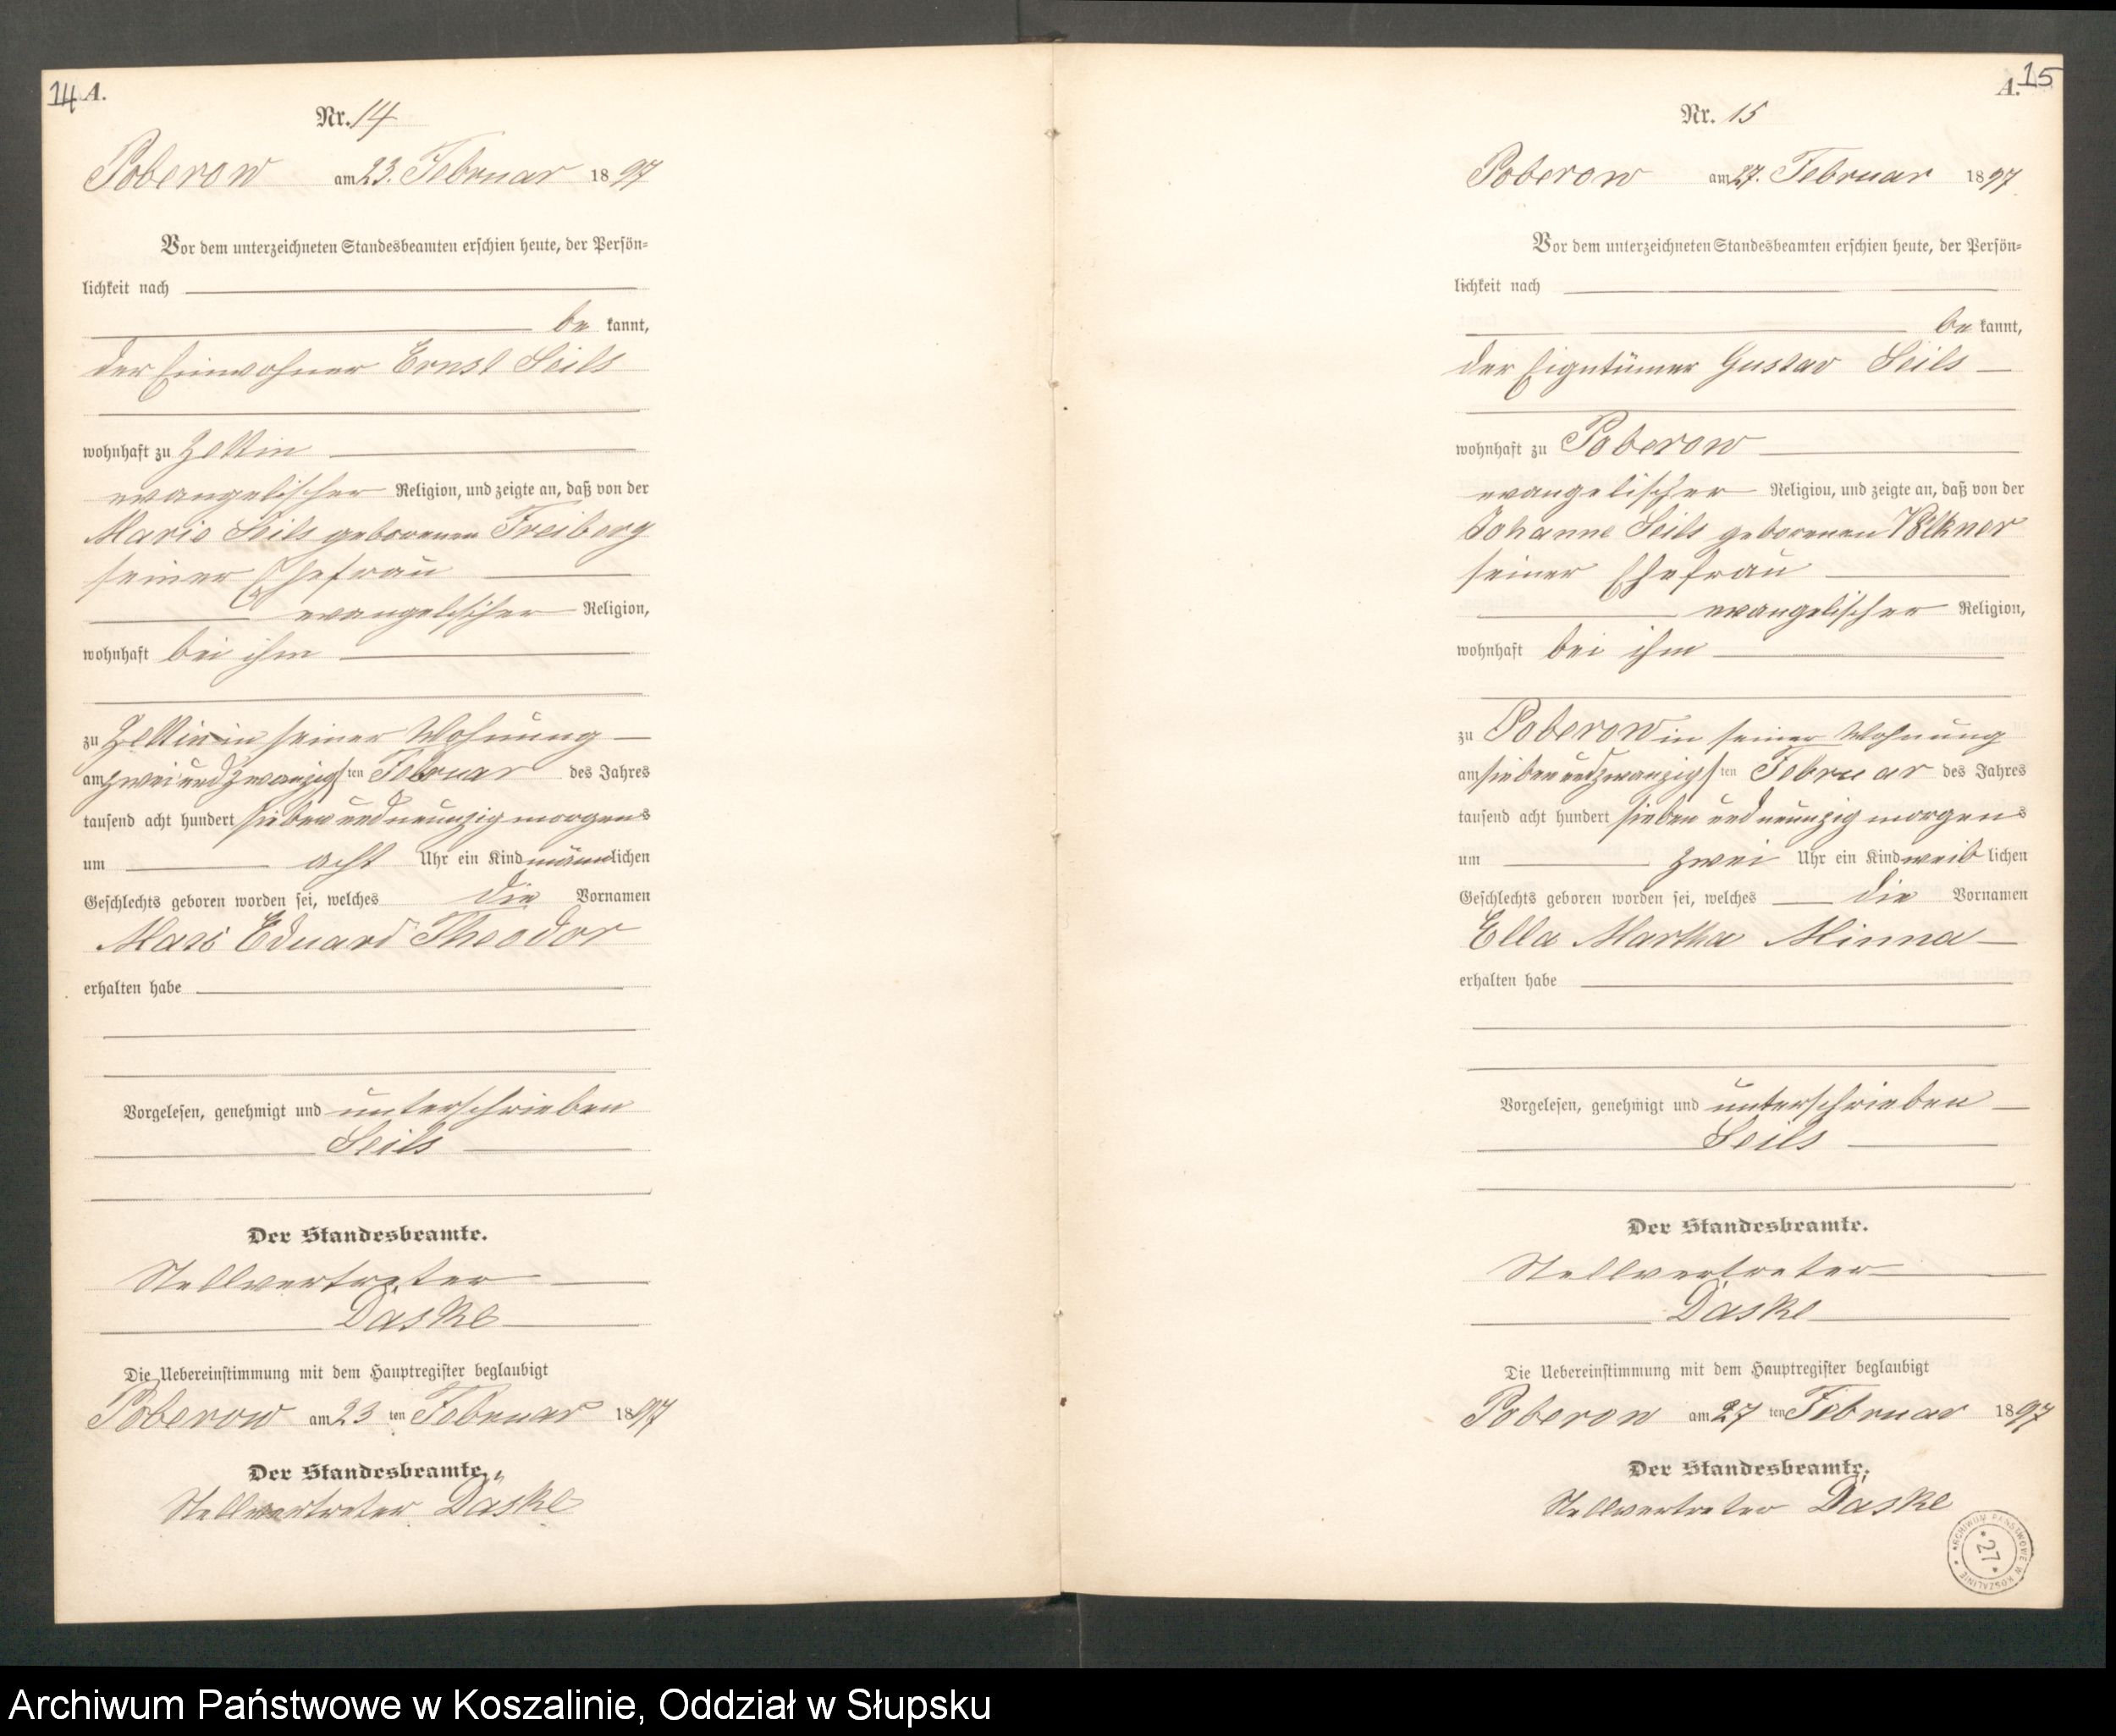 14 A.
Nr. 14
Poberow am 23. Februar 1897
Vor dem unterzeichneten Standesbeamten erschien heute, der Persön-
lichkeit nach
be kannt,
der Einwohner Ernst Seils
wohnhaft zu Zettin
evangelischer Religion, und zeigte an, daß von der
Marie Seils geborenen Freiberg
seiner Ehefrau
evangelischer Religion,
wohnhaft bei ihm
zu Zettin in seiner Wohnung
am zwei und zwanzigsten Februar des Jahres
tausend acht hundert sieben und neunzig morgens
um acht Uhr ein Kind männlichen
Geschlechts geboren worden sei, welches die Vornamen
Max Eduard Theodor
erhalten habe
Vorgelesen, genehmigt und unterschrieben
Seils
Der Standesbeamte.
Stellvertreter
Däske
Die Uebereinstimmung mit dem Hauptregister beglaubigt
Poberow am 23 ten Februar 1897
Der Standesbeamte.
Stellvertreter Däske
A. 15
Nr. 15
Poberow am 27. Februar 1897
Vor dem unterzeichneten Standesbeamten erschien heute, der Persön-
lichkeit nach
be kannt,
der Eigentümer Gustav Seils
wohnhaft zu Poberow
evangelischer Religion, und zeigte an, daß von der
Johanne Seils geborenen Völkner
seiner Ehefrau
evangelischer Religion,
wohnhaft bei ihm
zu Poberow in seiner Wohnung
am sieben und zwanzigsten Februar des Jahres
tausend acht hundert sieben und neunzig morgens
um zwei Uhr ein Kind weiblichen
Geschlechts geboren worden sei, welches die Vornamen
Ella Martha Minna
erhalten habe
Vorgelesen, genehmigt und unterschrieben
Seils
Der Standesbeamte.
Stellvertreter
Däske
Die Uebereinstimmung mit dem Hauptregister beglaubigt
Poberow am 27 ten Februar 1897
Der Standesbeamte.
Stellvertreter Däske
ARCHIWUM PAŃSTWOWE W KOSZALINIE
* 27 *
Archiwum Państwowe w Koszalinie, Oddział w Słupsku